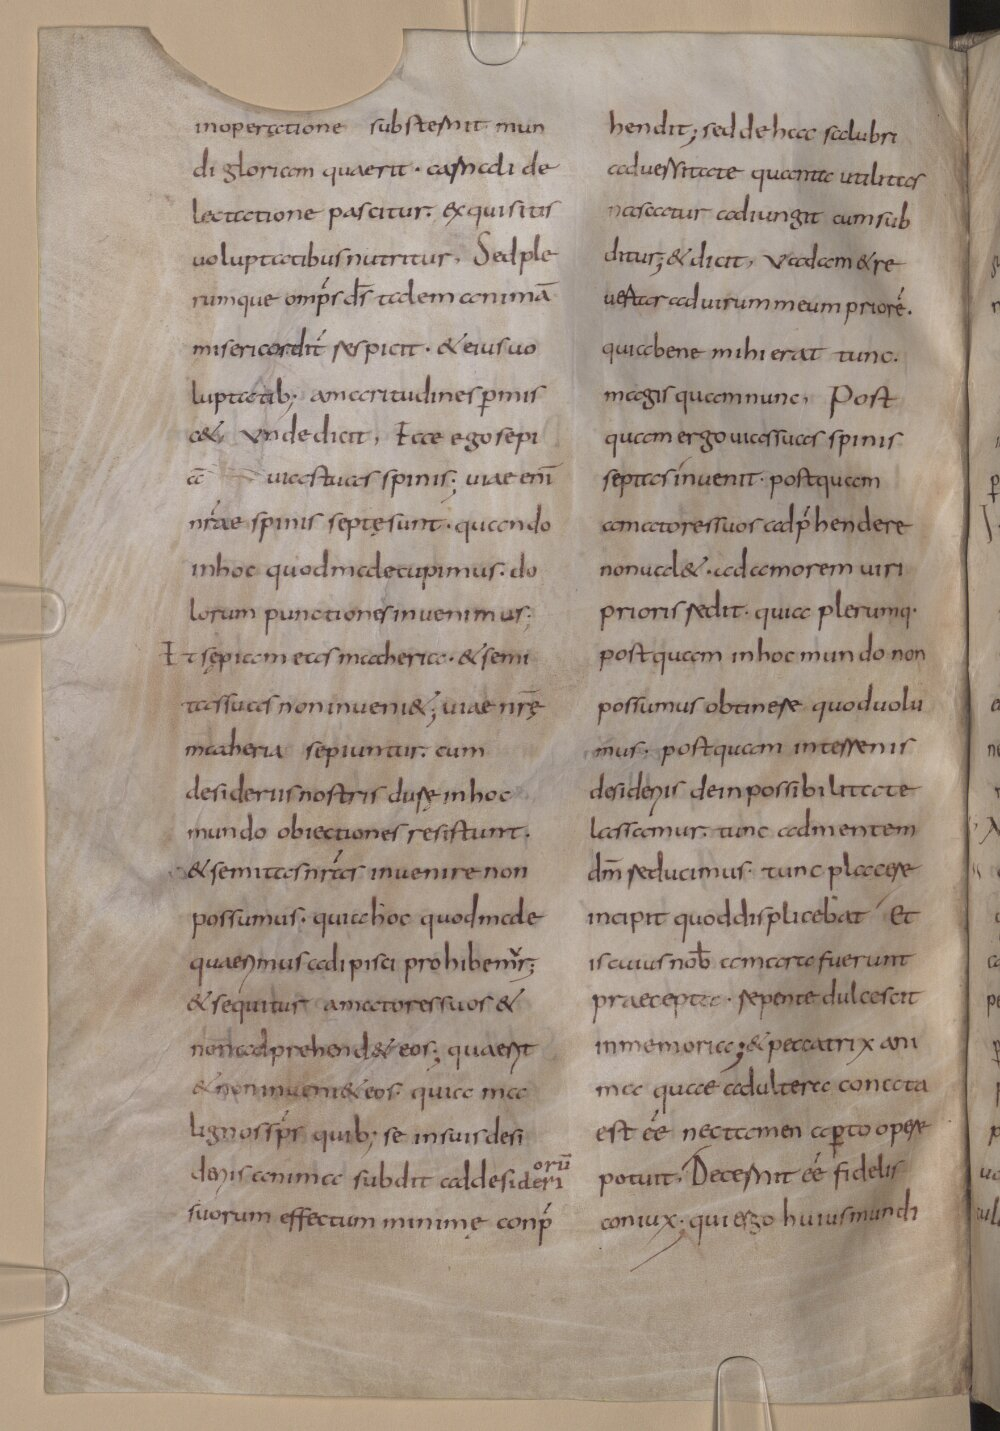 inoperatione substernit mun
di gloriam quaerit · carnali de
lectatione pascitur · exquisitis
uoluptatibus nutritur, Sed ple
rumque omp̄s d̄s talem animā
misericordit́ respicit · & eius uo
luptatib; amaritudines ꝑmis
c&, Vnde dicit, Ecce ego sepi
uias tuas spinis; uiae enī
nr̄ae spinis septę sunt · quando
in hoc quod male cupimus · do
lorum punctiones inuenimus;
Et sępiam eas maceria · & semi
tas suas non inueni&; uiae nr̄ę
maceria sepiuntur · cum
desideriis nostris durę in hoc
mundo obiectiones resistunt ·
& semitas nr̄as inuenire non
possumus · quia hoc quod male
quaerimus adipisci prohibemur;
& sequitur amatores suos &
non adprehend& eos; quaerit
& non inueni& eos · quia ma
lignos sp̄s quib; se in suis desi
deriis anima subdit ad desideri
orū
suorum effectum minimę conp̄
hendit; sed de hac salubri
aduersitate quanta utilitas
nascatur adiungit cum sub
ditur; & dicit, Vadam & re
uertar ad uirum meum priorē ·
quia bene mihi erat tunc ·
magis quam nunc, Post
quam ergo uias suas spinis
septas inuenit · postquam
amatores suos adp̄hendere
non ual& · ad amorem uiri
prioris redit · quia plerumq·
postquam in hoc mundo non
possumus obtinere quod uolu
mus · postquam in terrenis
desideriis de inpossibilitate
lassamur · tunc ad mentem
dm̄ reducimus · tunc placere
incipit quod displicebat Et
is cuius nob̄ amara fuerunt
praecepta · repente dulcescit
in memoria; & peccatrix ani
ma quae adultera conata
est ēe nec tamen aꝑto opere
potuit, Decernit ēe fidelis
coniux · qui ergo huius mundi